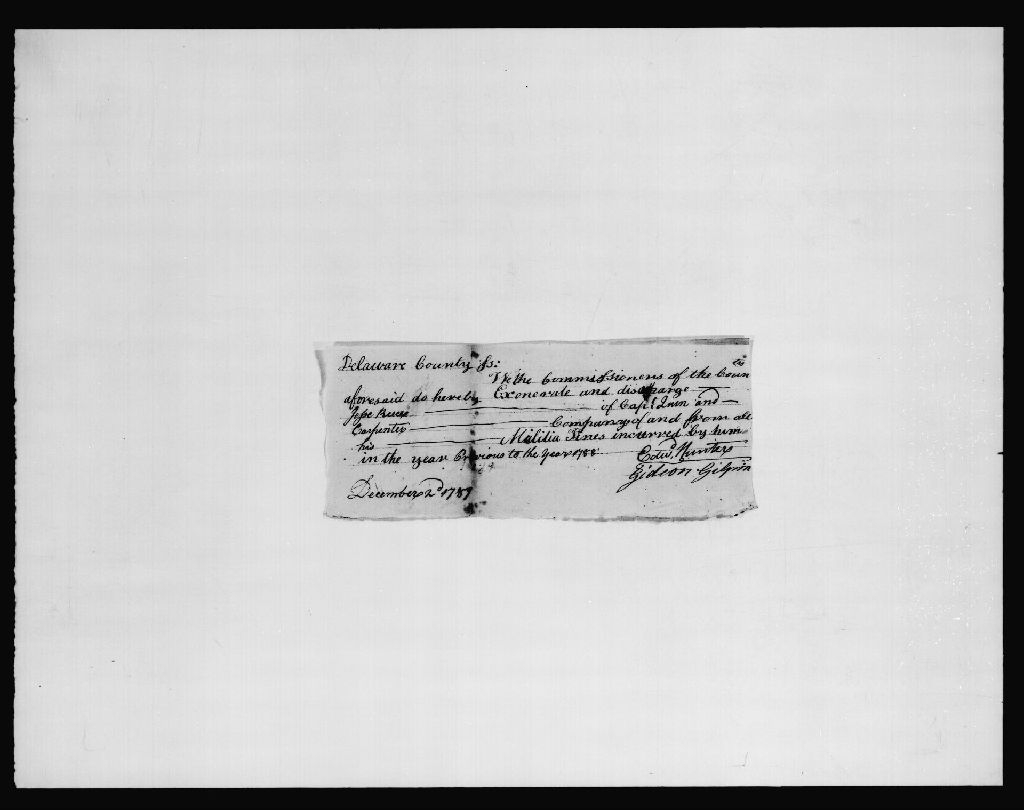 Delaware County ss:
We the Commissioners of the Coun ty
aforesaid do hereby Exonerate and discharge
of Capt. and
Carpenter Company of and from all
his Militia Fines incurred by him
in the year Previous to the Year 1788
Edwd. Hunter
Gideon Gilpin
December 2d 1789